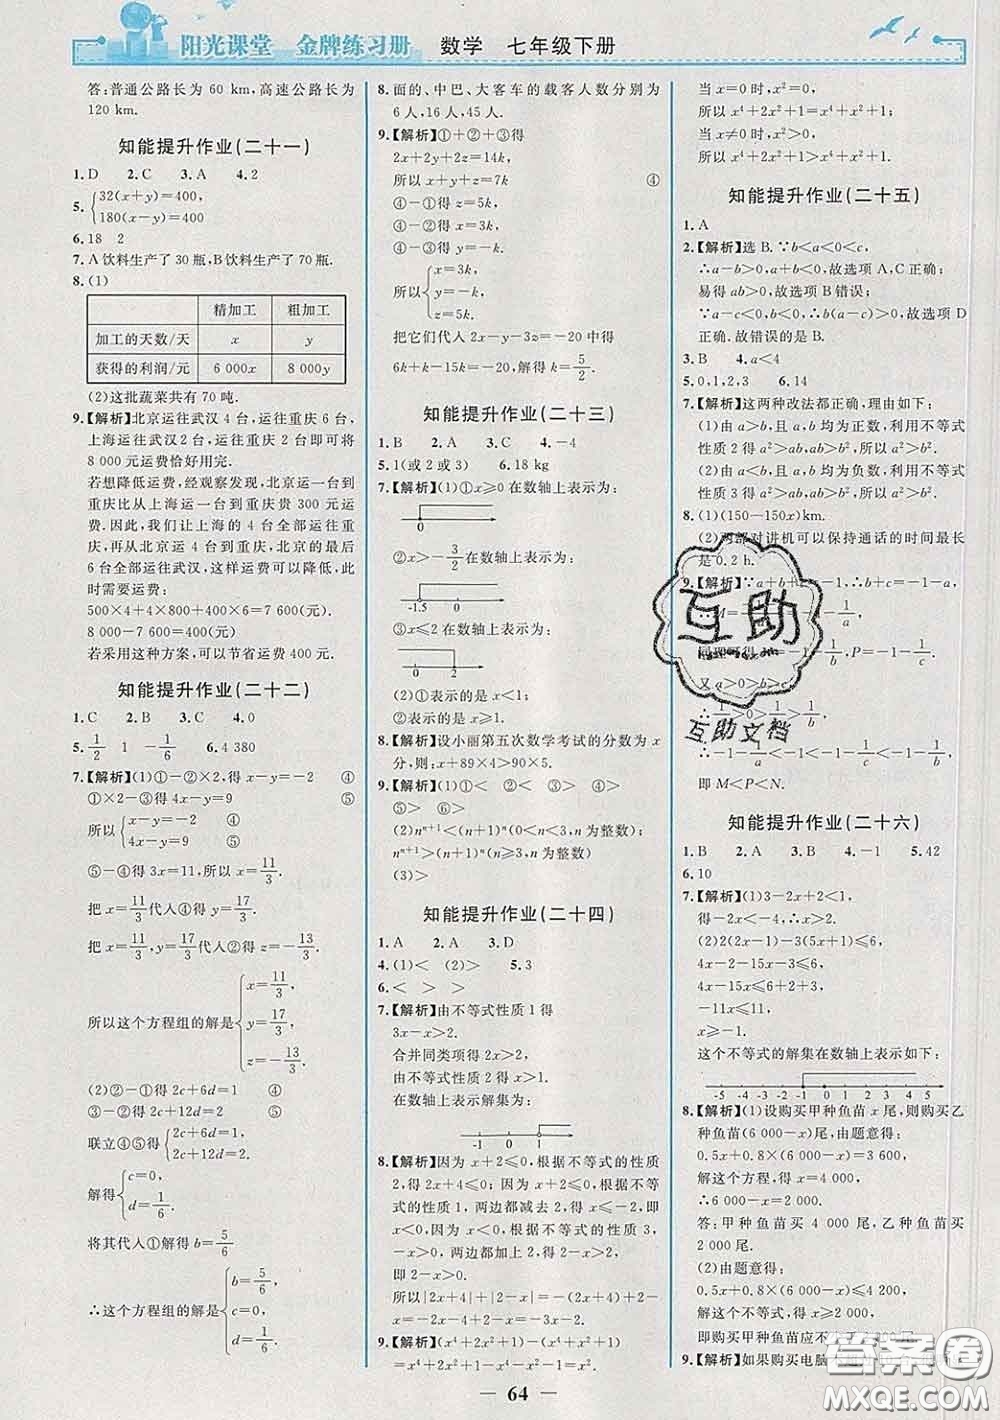 阳光课堂 金牌练习册 数学 七年级下册
答:普通公路长为 60 km,高速公路长为
120 km.
知能提升作业(二十一)
1.D 2.C 3.A 4.2
5.{32(x+y)=400,
180(x-y)=400
6.18 2
7.A饮料生产了30瓶,B饮料生产了70瓶.
8.(1)
精加工 粗加工
加工的天数/天 x y
获得的利润/元 6 000x 8 000y
(2)这批蔬菜共有70吨.
9.【解析】北京运往武汉4台,运往重庆6台,
上海运往武汉2台,运往重庆2台即可将
8 000元运费恰好用完.
若想降低运费,经观察发现,北京运一台到
重庆比从上海运一台到重庆贵300元运
费.因此,我们让上海的4台全部运往重
庆,再从北京运4台到重庆,北京剩下的
6台全部运往武汉,这样运费可以降低,此
时需要运费:
500×4+4×800+400×6=7 600(元).
8 000-7 600=400(元)
若采用这种方案,可以节省运费400元.
知能提升作业(二十二)
1.C 2.B 3.C 4.0
5.1/2 1 -1/6 6.4 380
7.【解析】(1)①-②×2,得x-y=-2 ④
①×2-③得4x-y=9 ⑤
所以{x-y=-2 ④
4x-y=9 ⑤
⑤-④得3x=11,所以x=11/3.
把x=11/3代人④得y=17/3.
把x=11/3,y=17/3代人②得z=-13/3.
所以这个方程组的解是{x=11/3,
y=17/3,
z=-13/3.
(2)②-①得2c+6d=1 ④
③-②得2c+12d=2 ⑤
联立④⑤得{2c+6d=1,
2c+12d=2.
解得{c=0,
d=1/6.
将其代人①解得b=5/6
∴这个方程组的解是{b=5/6,
c=0,
d=1/6.
8.面的、中巴、大客车的载客人数分别为
6人,16人,45人.
9.【解析】①+②+③得
2x+2y+2z=14k,
所以x+y+z=7k ④
④-①得z=5k,
④-②得x=3k,
④-③得y=-k,
所以{x=3k,
y=-k,
z=5k.
把它们代人2x-y-3z=-20中得
6k+k-15k=-20,解得k=5/2.
知能提升作业(二十三)
1.B 2.A 3.C 4.-4
5.1(或2或3) 6.18 kg
7.【解析】(1)①x≥0在数轴上表示为:
0
②x>-3/2在数轴上表示为:
-1.5 0
③x≤2在数轴上表示为:
0 2
(2)①表示的是x<1;
②表示的是x≥1.
8.【解析】设小丽第五次数学考试的分数为x
分,则:x+89×4>90×5.
9.【解析】(1)①< ②< ③> ④>
⑤> ⑥>
(2)n^(n+1)<(n+1)^n(n<3,n为整数);
n^(n+1)>(n+1)^n(n≥3,n为整数)
(3)>
知能提升作业(二十四)
1.A 2.A 3.D
4.(1)< (2)> 5.3
6.< > >
7.【解析】由不等式性质1得
3x-x>2.
合并同类项得2x>2,
由不等式性质2得x>1.
在数轴上表示解集为:
-1 0 1
8.【解析】因为x+2≤0,根据不等式的性质
2,得2x+4≤0;因为x+2≤0,根据不等式
的性质1,两边都减去2,得x≤-2,所以
x<0,因为x<0,根据不等式的性质3,
-x>0,两边都加上2,得2-x>2>0,
即2-x>0.
所以|2x+4|+|2-x|=-(2x+4)+2-x
=-2x-4+2-x=-3x-2.
9.【解析】(x⁴+2x²+1)-(x⁴+x²+1)
=x⁴+2x²+1-x⁴-x²-1=x².
当x=0时,x²=0,
所以x⁴+2x²+1=x⁴+x²+1;
当x≠0时,x²>0,
所以x⁴+2x²+1>x⁴+x²+1.
知能提升作业(二十五)
1.A
2.【解析】选B.∵b<a<0<c,
∴a-b>0,a+b<0,故选项A,C正确;
易得ab>0,故选项B错误;
∵a-c<0,b<0,∴b(a-c)>0,故选项D
正确.故错误的是B.
3.B 4.a<4
5.0,1,2,3 6.14
7.【解析】这两种改法都正确,理由如下:
(1)由a>b,且a,b均为正数,利用不等式
性质2得a²>ab,ab>b²,所以a²>b².
(2)由a<b,且a,b均为负数,利用不等式
性质3得a²>ab,ab>b²,所以a²>b².
8.(1)(150-150x)km.
(2)两部对讲机可以保持通话的时间最长
是0.2 h.
9.【解析】∵a+b+c=-1,∴b+c=-1-a,
-1-1/b,P=-1-1/c.
又a>0>b>c,
∴1/a>0>1/c>1/b,
∴-1-1/a<-1-1/c<-1-1/b,
即M<P<N.
知能提升作业(二十六)
1.B 2.A 3.B 4.-1 5.42
6.10
7.【解析】(1)3-2x+2<1,
得-2x<-4,∴x>2.
(2)2(2x-1)-3(5x+1)≤6,
4x-2-15x-3≤6,
4x-15x≤6+2+3,
-11x≤11,
x≥-1.
这个不等式的解集在数轴上表示如下:
-5 -4 -3 -2 -1 0 1 2 3 4 5
8.【解析】(1)设购买甲种鱼苗x尾,则购买乙
种鱼苗(6 000-x)尾,由题意得:
0.5x+0.8×(6 000-x)=3 600,
解这个方程,得:x=4 000,
∴6 000-x=2 000.
答:甲种鱼苗买4 000尾,乙种鱼苗买
2 000尾.
(2)由题意得:
0.5x+0.8×(6 000-x)≤4 200,
解这个不等式,得:x≥2 000,
即购买甲种鱼苗应不
9.【解析】如果购买电脑
— 64 —
互助
互助文档
答案圈
MXQE.COM